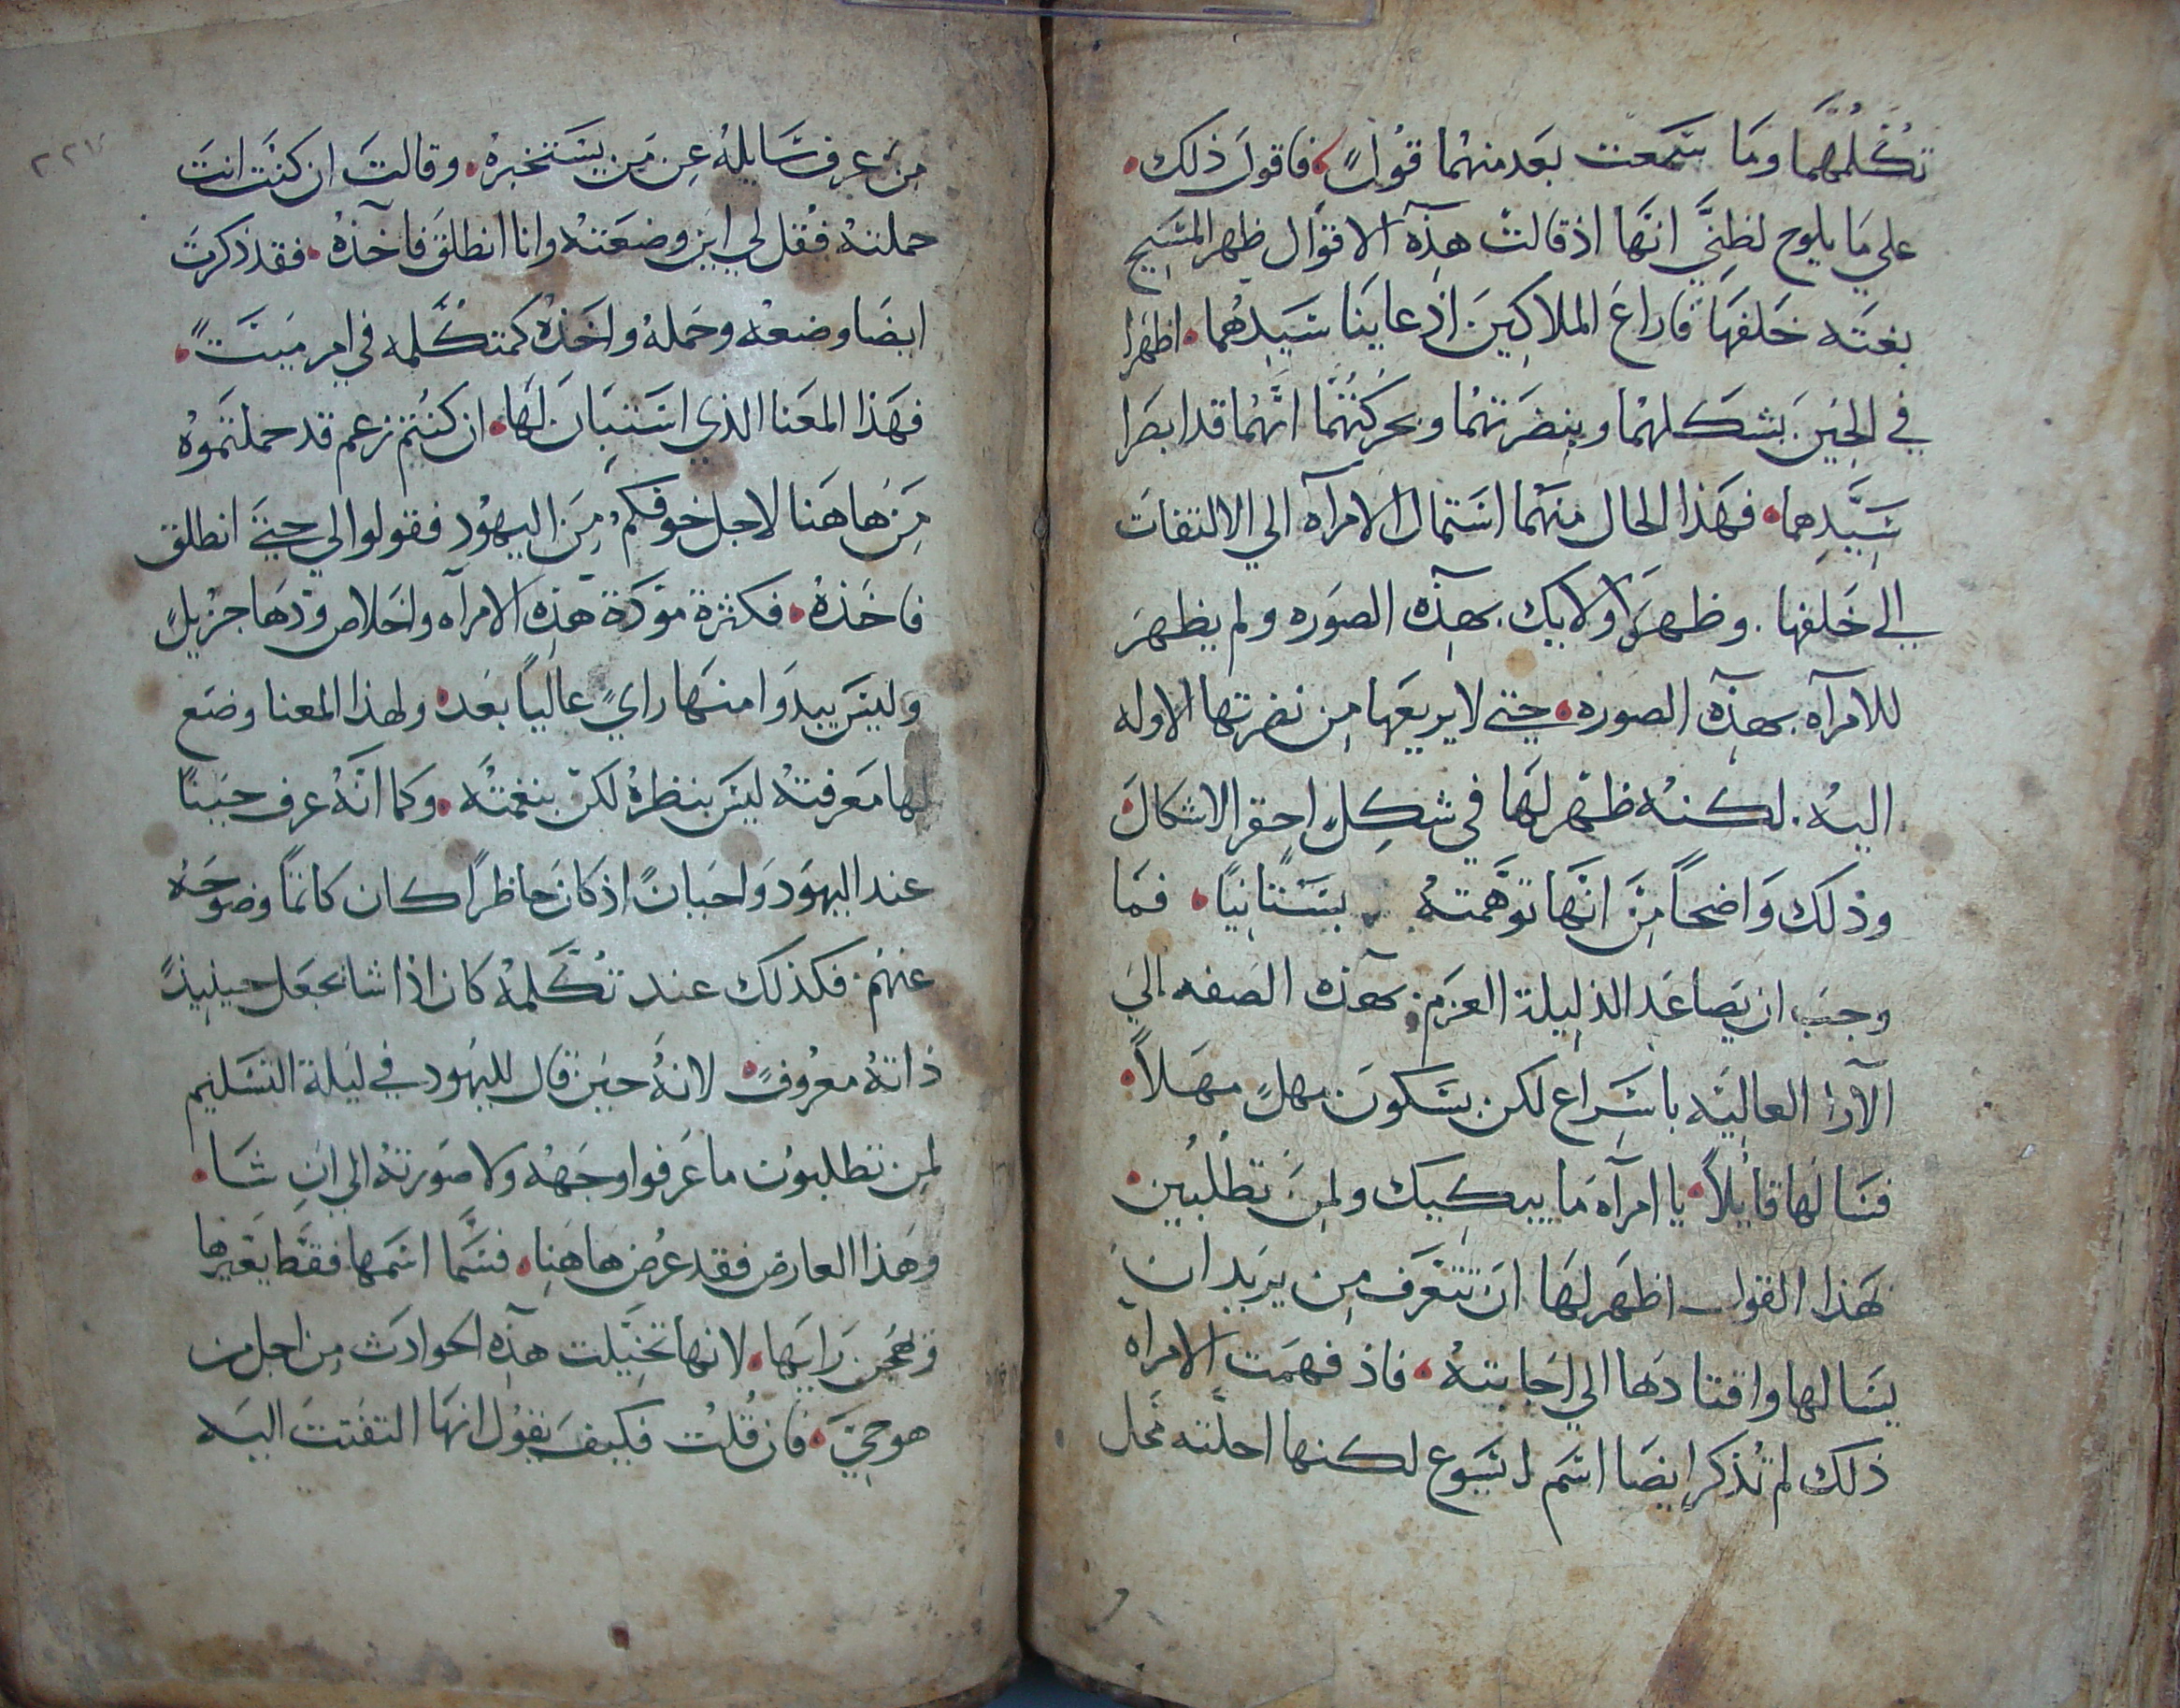 تكلمهما وما سمعت بعد منهما قولاً فاقول ذلك
علي ما يلوح لظني انها اذ قالت هذه الاقوال ظهر المسيح
بغته خلفها فاراع الملاكين اذ عاينا سيدهما اظهرا
في الحين بشكلهما وبنضرتهما وبحركتهما انهما قد ابصرا
سيدهما فهذا الحال منهما استمال الامراه الي الالتفات
الي خلفها وظهر لاولايك بهذه الصوره ولم يظهر
للامراه بهذه الصوره حتي لا يريعها من نضرتها الاوله
اليه لكنه ظهر لها في شكل احقر الاشكال
وذلك واضحاً من انها توهمته بستانياً فما
وجب ان يصاعد الذليلة العزم بهذه الصفه الي
الآرا العاليه باسراع لكن بسكون مهلٍ مهلاً
فسالها قايلاً يا امراه ما يبكيك ولمن تطلبين
هذا القول اظهر لها ان تتعرف من يريد ان
يسالها واقتادها الي اجابته فاذ فهمت الامراه
ذلك لم تذكر ايضا اسم ايسوع لكنها احلته محل
من عرف سايله عن من يستخبره وقالت ان كنت انت
حملته فقل لي اين وضعته وانا انطلق فاخذه فقد ذكرت
ايضا وضعه وحمله واخذه كمتكلمه في امر ميتٍ
فهذا المعنا الذي استبان لها ان كنتم زعم قد حملتموه
من هاهنا لاجل خوفكم من اليهود فقولوا لي حتي انطلق
فاخذه فكثرة مودة هذه الامراه واخلاص ودها جزيلٍ
وليس يبدوا منها رايٍ عالياً بعد ولهذا المعنا وضع
لها معرفته ليس بنظره لكن بنغمته وكما انه عرف حيناً
عند اليهود واحيانً اذ كان حاظراً كان كاتماً وضوحه
عنهم فكذلك عند تكلمه كان اذا شا يجعل حينيذٍ
ذاته معروفٍ لانه حين قال لليهود في ليلة التسليم
لمن تطلبون ما عرفوا وجهه ولا صورته الي ان شا
وهذا العارض فقد عرض هاهنا فسما اسمها فقط يغيرها
وهجن رايها لانها تخيلت هذه الحوادث من اجل من
هو حي فان قلت فكيف يقول انها التفتت اليه